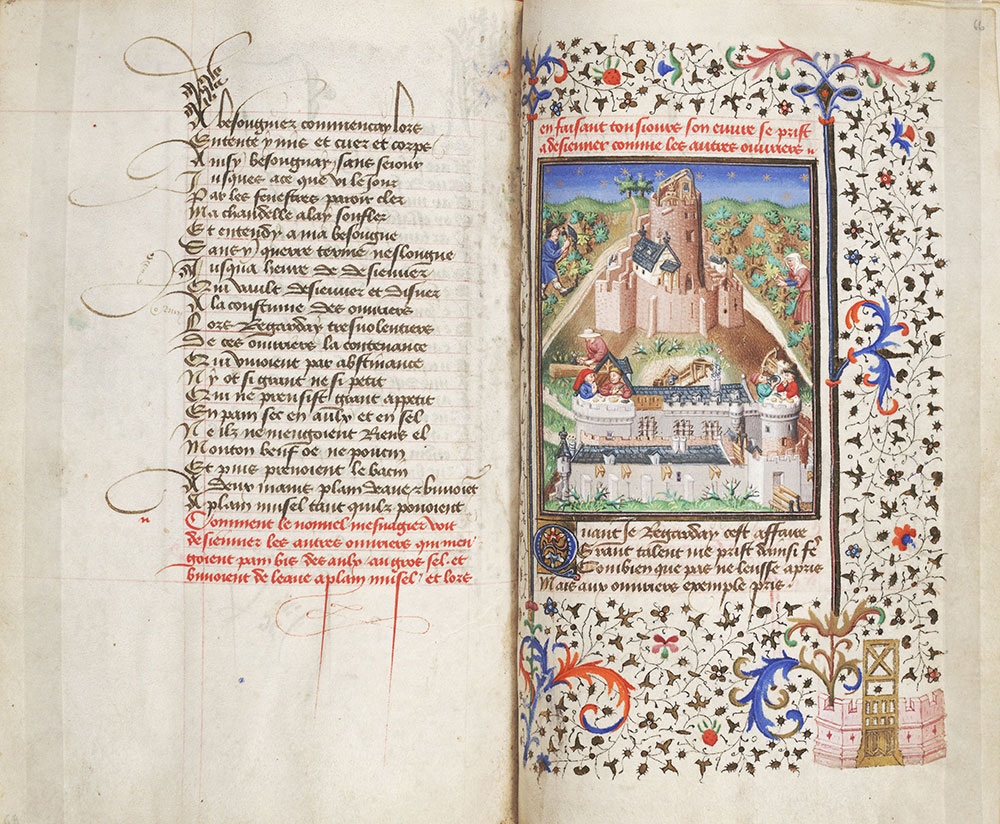 A besongnier commencay lors
Entente y mis et cuer et corps
Ainsy besongnay sans seiour
Jusques ace que vi le jour
Par les fenestres paroir cler
Ma chandelle alay soufler
Et entendy a ma besongne
Sans y querre terme neslongne
Jusqua heure de desieuner
Qui vault desieuner et disner
A la coustume des ouuriers
Lors Regarday tresuolentiers
De ces ouuriers la contenance
Qui viuoient par abstinance
Ny ot si grant ne si petit
Qui ne prensist grant appetit
En pain sec en aulx et en sel
Ne ilz ne mengoient Riens el
Mouton beuf oe ne poucin
Et puis prenoient le bacin
A deux mains plain deaue et buuoient
A plain musel tant quilz pouoient
Comment le nouuel mesnagier voit
desieuner les autres ouuriers qui men
goient pain bis des aulx au gros sel et
buuoient de leaue a plain musel et lors
66
en faisant tousiours son euure se prist
a desieuner comme les autres ouuriers
Quant Je Regarday cest affaire
Grant talent me prist dainsi fe
Combien que pas ne leusse apris
Mais aux ouuriers exemple pris